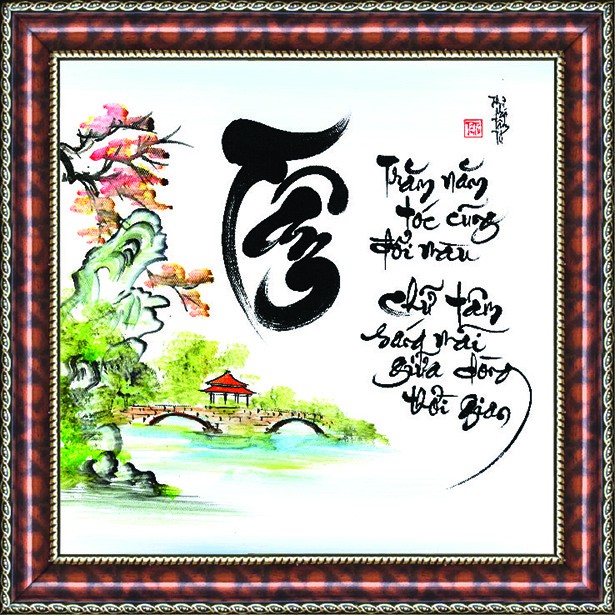 Tâm
Trăm năm
tóc cũng
đổi màu
chữ tâm
sáng mãi
giữa dòng
thời gian